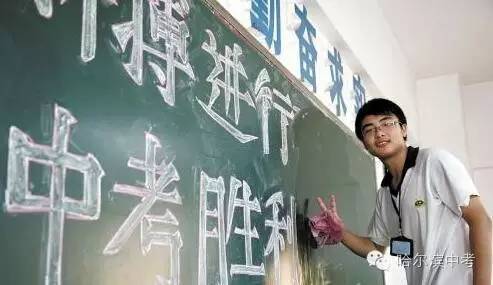 勤奋求
搏进行
中考胜利
哈尔滨中考